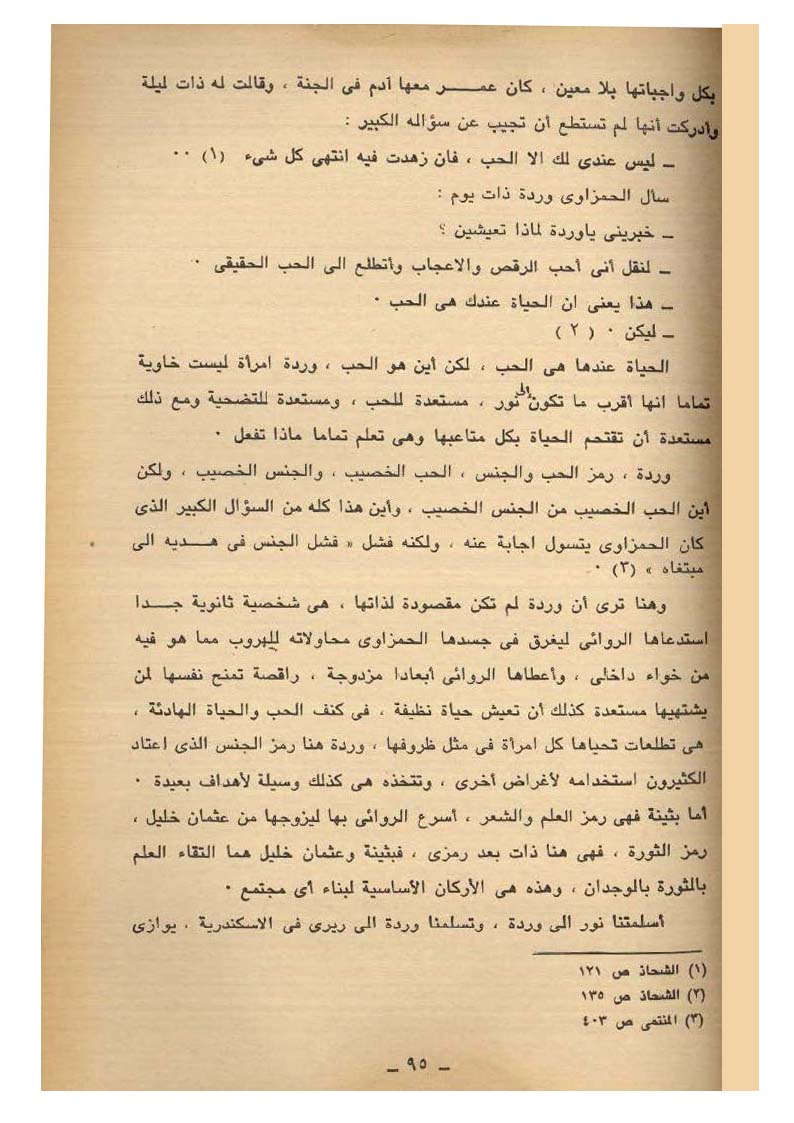 بكل واجباتها بلا معين ، كان عمـــــر معها آدم فى الجنة ، وقالت له ذات ليلة
وأدركت أنها لم تستطع أن تجيب عن سؤاله الكبير :
ــ ليس عندى لك الا الحب ، فان زهدت فيه انتهى كل شىء (١) ٠٠
سأل الحمزاوى وردة ذات يوم :
ــ خبرينى ياوردة لماذا تعيشين ؟
ــ لنقل أنى أحب الرقص والاعجاب وأتطلع الى الحب الحقيقى ٠
ــ هذا يعنى ان الحياة عندك هى الحب ٠
ــ ليكن ٠ (٢)
الحياة عندها هى الحب ، لكن أين هو الحب ، وردة امرأة ليست خاوية
تماما انها أقرب ما تكون الى نور ، مستعدة للحب ، ومستعدة للتضحية ومع ذلك
مستعدة أن تقتحم الحياة بكل متاعبها وهى تعلم تماما ماذا تفعل ٠
وردة ، رمز الحب والجنس ، الحب الخصيب ، والجنس الخصيب ، ولكن
أين الحب الخصيب من الجنس الخصيب ، وأين هذا كله من السؤال الكبير الذى
كان الحمزاوى يتسول اجابة عنه ، ولكنه فشل « فشل الجنس فى هـــديه الى
مبتغاه » (٣) ٠
وهنا ترى أن وردة لم تكن مقصودة لذاتها ، هى شخصية ثانوية جـــدا
استدعاها الروائى ليغرق فى جسدها الحمزاوى محاولاته للهروب مما هو فيه
من خواء داخلى ، وأعطاها الروائى أبعادا مزدوجة ، راقصة تمنح نفسها لمن
يشتهيها مستعدة كذلك أن تعيش حياة نظيفة ، فى كنف الحب والحياة الهادئة ،
هى تطلعات تحياها كل امرأة فى مثل ظروفها ، وردة هنا رمز الجنس الذى اعتاد
الكثيرون استخدامه لأغراض أخرى ، وتتخذه هى كذلك وسيلة لأهداف بعيدة ٠
أما بثينة فهى رمز العلم والشعر ، أسرع الروائى بها ليزوجها من عثمان خليل ،
رمز الثورة ، فهى هنا ذات بعد رمزى ، فبثينة وعثمان خليل هما التقاء العلم
بالثورة بالوجدان ، وهذه هى الأركان الأساسية لبناء أى مجتمع ٠
أسلمتنا نور الى وردة ، وتسلمنا وردة الى ريرى فى الاسكندرية ، يوازى
(١) الشحاذ ص ١٢١
(٢) الشحاذ ص ١٣٥
(٣) المنتمى ص ٤٠٣
ــ ٩٥ ــ